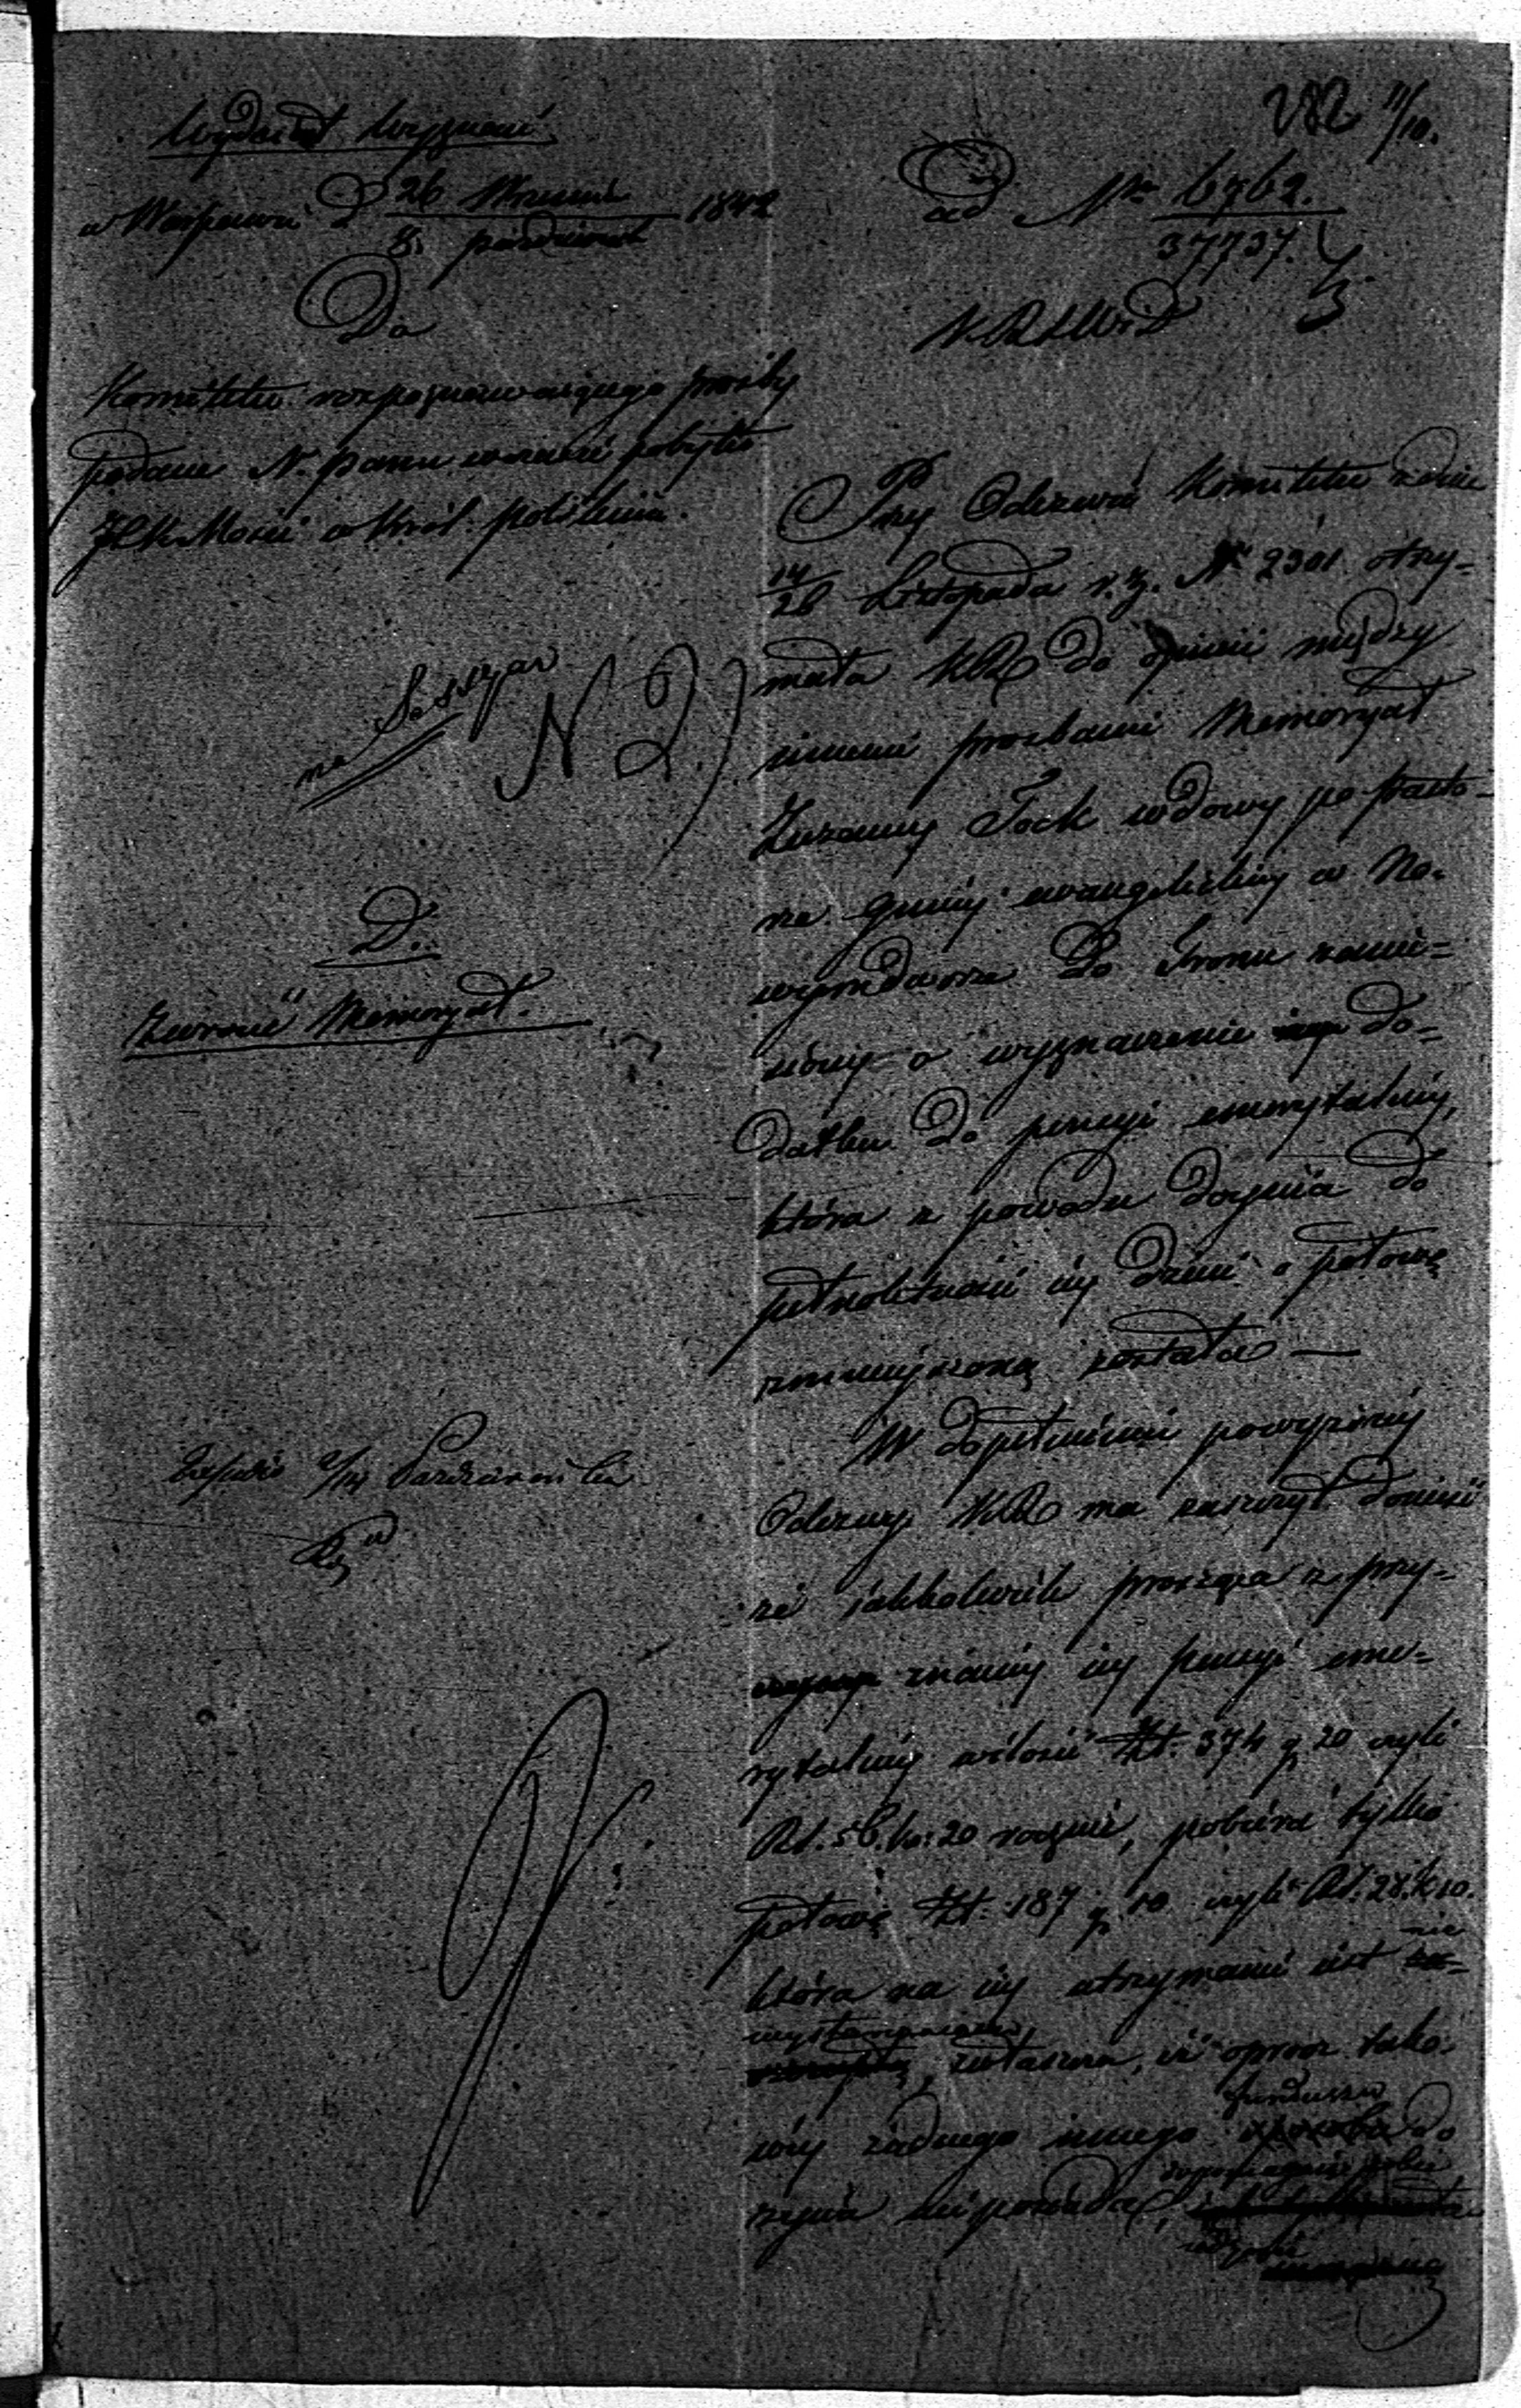 Wydział Wyznań
w Warszawie d 26 Września / 8 października 1842
Do
Komitetu rozpoznawającego prośby
podane N. Panu w czasie pobytu
JCK Mości w Król. Polskiem.
na Sessyą
N 2)
D.
zwrócić Memoryał.
282 11/10.
ad Nr 6762. / 37737.
K.R.S.W.D
Przy Odezwie Komitetu z dnia
14/26 Listopada r. z. Nr 2301 otrzy-
mała KR do opinii między
innemi prozbami Memoryał
Zuzanny Tock wdowy po pasto-
rze gminy ewangelickiej w No-
wymdworze do Tronu zanie-
sioney o wyznaczenie do-
datku do pensyi emerytalnéj,
która z powodu dojścia do
pełnoletności iéj dzieci o połowę
zmniejszoną została —
W dopełnieniu powyższéj
Odezwy KR ma zaszczyt donieść
że jakkolwiek prosząca z przy-
znanéj iéj pensyi eme-
rytalnéj w ilości Zł. 374 g. 20 czyli
Rs. 56. ko: 20 rocznie, pobiera tylko
połowę Zł. 187 g. 10 czyli Rs. 28. K 10.
która na iéj utrzymanie iest nie
wystarczaiącą, zwłaszcza, iż oprócz tako-
wéj żadnego innego funduszu do
życia nieposiada,